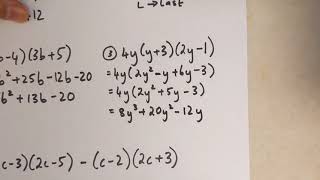 L → Last
.12
b-4)(3b+5)
b²+25b-12b-20
b²+13b-20
③ 4y(y+3)(2y-1)
=4y(2y²-y+6y-3)
=4y(2y²+5y-3)
=8y³+20y²-12y
c-3)(2c-5) - (c-2)(2c+3)